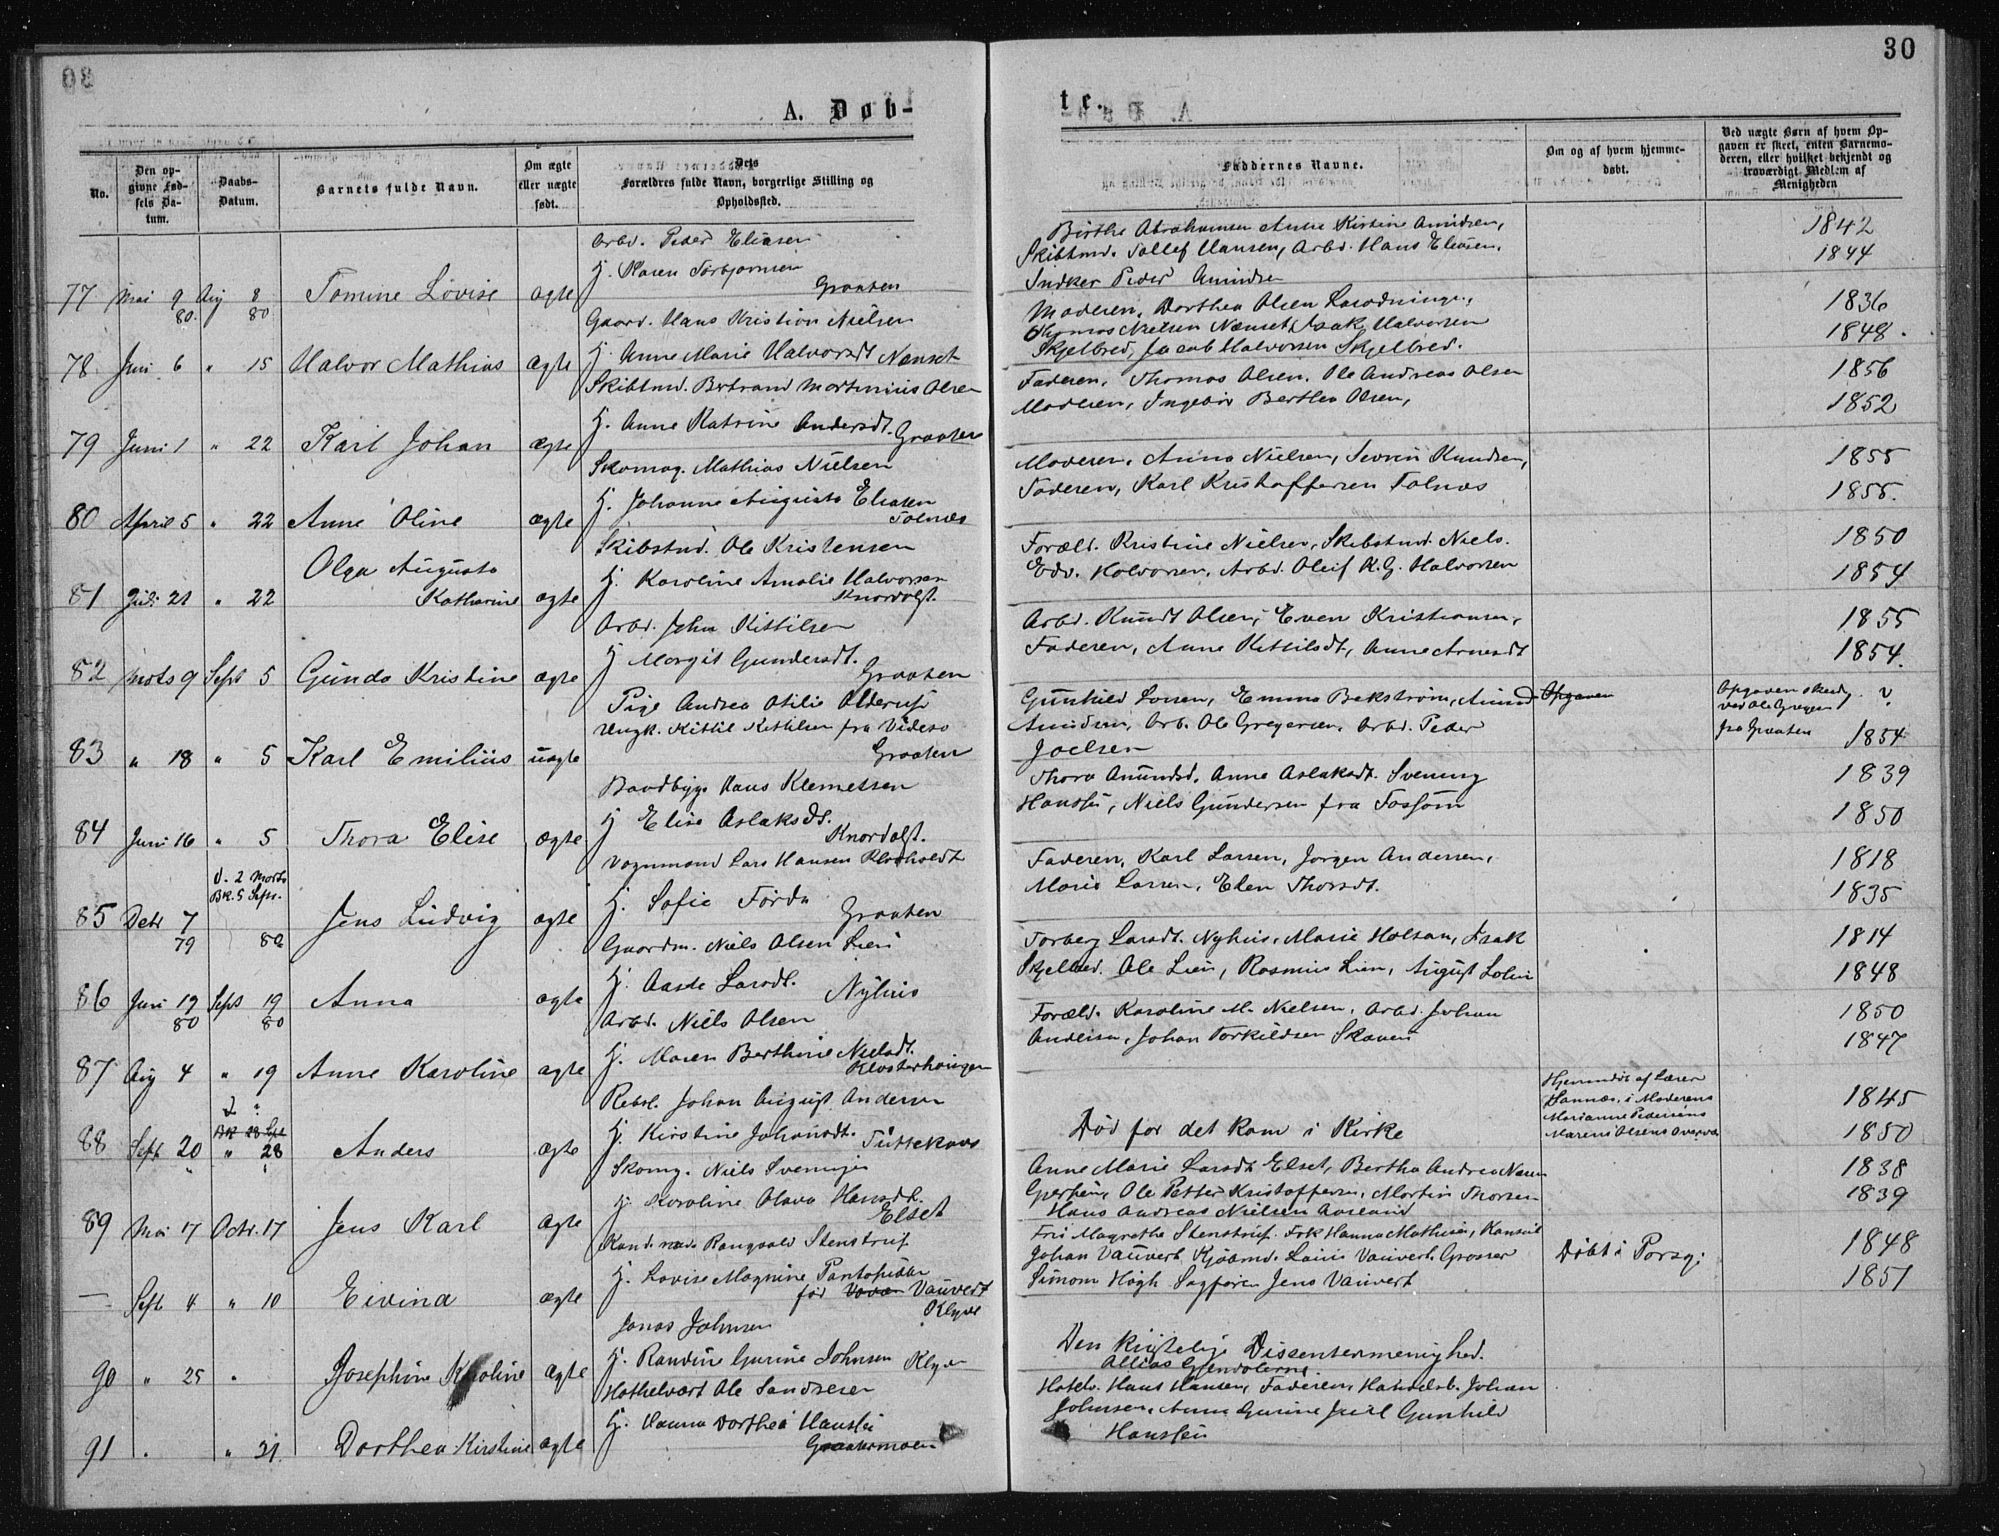 30
A. Døb-
te.
No.
Den op-
givne Fød-
sels Da-
tum.
Daabs-
Datum.
Barnets fulde Navn.
Om ægte
eller uægte
født.
Dets
Forældres fulde Navn, borgerlige Stilling og
Opholdssted.
Faddernes Navne.
Om og af hvem hjemme-
døbt.
Ved uægte Børn af hvem Op-
gaven er skeet, enten Barnemo-
deren, eller hvilket bekjendt og
troværdigt Medlem af
Menigheden
Arbd. Peder Eliasen
Birthe Abrahamsen Anne Kirstine Amundsen,
1842
Skibtmd. Tollef Hansen, Arbd. Hans Eliasen.
1844
Hj. Karen Torbjørnsen
Graaten
Inderst Peder Amundsen
77 Mai 9 Aug 8 Tomine Lovise ægte
80. 80
Gaard. Hans Kristian Nielsen
Moderen, Dorthea Olsen
1836
Thomas Nielsen Nenset, Isak Halvorsen
1848.
Hj. Anne Marie Halvorsdt Nenset
Skjelbred, Jacob Halvorsen Skjelbred.
78. Juni 6 " 15 Halvor Mathias ægte
Skibtmd. Bertrand Martinius Olsen
Faderen, Thomas Olsen. Ole Andreas Olsen
1856
Moderen, Ingebør Berthea Olsen,
1852
Hj. Anne Katrine Andersdt. Graaten
79 Juni 1 " 22 Karl Johan ægte
Skomag. Mathias Nielsen
Moderen, Anna Nielsen, Severin Knudsen,
1855
Faderen, Karl Kristoffersen Folnæs
1855.
Hj. Johanne Augusta Eliasen
Folnæs
80 April 5 " 22 Anne Oline ægte
Skibstmd. Ole Kristensen
Foræld. Kristine Nielsen, Skibstmd Niels.
1850
Olga Augusta
Edv. Halvorsen, Arbd. Oleif K. G. Halvorsen
1854
Hj. Karoline Amalie Halvorsen
81 Juli 21 " 22 Katharine ægte Knardalst.
Arbd. John Kittilsen
Arbd. Knudt Olsen, Even Kristiansen,
1855
Faderen, Anne Kittilsdt, Anne Arnesdt
1854.
Hj Margit Gundersdt.
82 Marts 9 Sept 5 Gunda Kristine ægte Graaten
Pige Andrea Otilie Olderup
Gunhild Larsen, Emma Bekstrøm, Amund
Opgaven
Opgaven skeet
ved Ole Gregersen
fra Graaten
?
Ungk. Kittil Kittilsen fra Videsø
Amundsen, Arb. Ole Gregersen, Arbd. Peder
1854
83 " 18 " 5 Karl Emilius uægte Graaten
Joelsen
Baadbyg. Hans Klemetsen
Thora Amundsd. Anne Aslaksdt. Svenung
1839
Hansen, Niels Gundersen fra Fossum
1850
Hj Elise Aslaksdt.
84 Juni 16 " 5 Thora Elise ægte Knardalst.
Vognmand Lars Hansen Kloholdt
Faderen, Karl Larsen, Jørgen Andersen,
1818
D. 2 Marts
Bk. 5 Sept.
Marie Larsen, Elen Thorsdt.
1835
Hj. Sofie Førda
85 Decbr 7 Jens Ludvig ægte Graaten
79 80
Gaardm. Niels Olsen Lien
Torberg Larsdt. Nyhus, Marie Holtan, Isak
1814
Skjelbred. Ole Lien, Rasmus Lien, August
1848
Hj. Aaste Larsdt.
86 Juni 19 Sept 19 Anna ægte Nyhus
80 80
Arbd. Niels Olsen
Foræld. Karoline M. Nielsen, Arbd. Johan
1850
Andersen, Johan Torkildsen Skaven
1847
Hj. Maren Berthine Nielsdt.
87 Aug 4 " 19 Anne Karoline ægte Klosterhaugen
Rebsl. Johan August Andersen
Hjemmdøbt af Lærer
Sannæs, i Moderens
Marianne Pedersens
Maren Olsens Overvær
1845
Hj. Kirstine Johansdt. Tuftekaas
Død før det kom i Kirke
1850
88 Sept 20 " 28 Anders ægte
Skomg. Niels Svenungsen
Anne Marie Larsdt Elset, Bertha Andrea
1838
Ole Petter Kristoffersen, Martin Thorsen
1839
Hj Karoline Olava Hansdt.
Hans Andreas Nielsen
89 Mai 17 Octr. 17 Jens Karl ægte Elset
Rangvald Stenstrup
Fru Magrethe Stenstrup. Frk Hanna Mathisen, Konsul
1848
Johan Vauvert Kjøbmd. Louis Vauvert. Grosser
Døbt i Porsg.
Hj. Lovise Magnine Pantophidan
Simon Høgh Sagfører Jens Vauvert
1851
— Sept 4 " 10 Eivind ægte før Vauvert
Klyve
Jonas Johnsen
Den Dissentermenighed.
Hj. Randine Gurine Johnsen
90 " 25 " Josephine Karoline ægte Klyve
Hotelvært Ole Sandersen
Hotelv. Hans Hansen, Faderen, Handelsb. Johan
Johnsen, Anne Gurine Juel Gunhild
Hj. Hanna Dorthea Hansen
Hansen
91 . " 31 Dorthea Kirstine ægte Graatenmoen